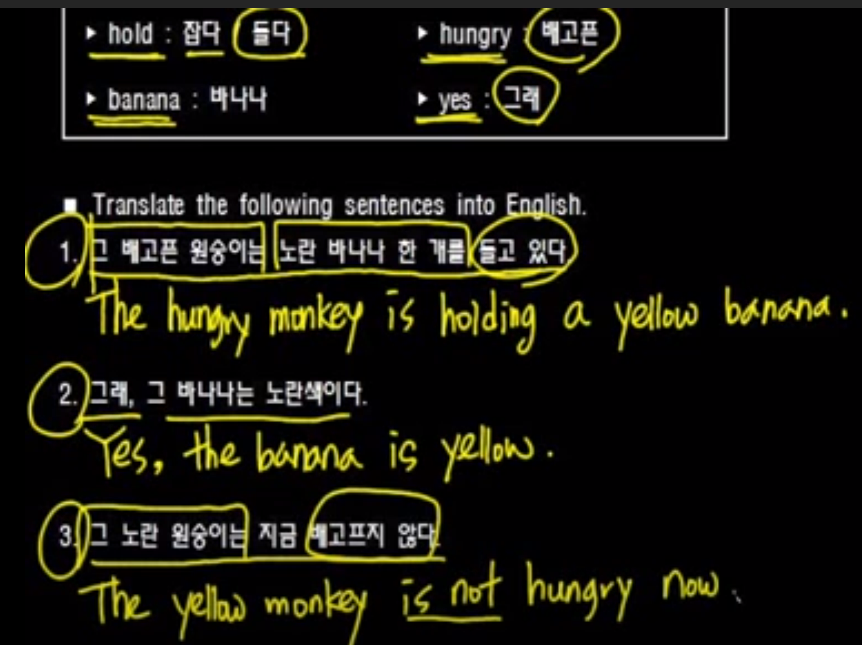 ▶ hold : 잡다 들다 ▶ hungry : 배고픈
▶ banana : 바나나 ▶ yes : 그래
■ Translate the following sentences into English.
1. 그 배고픈 원숭이는 노란 바나나 한 개를 들고 있다
The hungry monkey is holding a yellow banana.
2. 그래, 그 바나나는 노란색이다.
Yes, the banana is yellow.
3. 그 노란 원숭이는 지금 배고프지 않다
The yellow monkey is not hungry now.